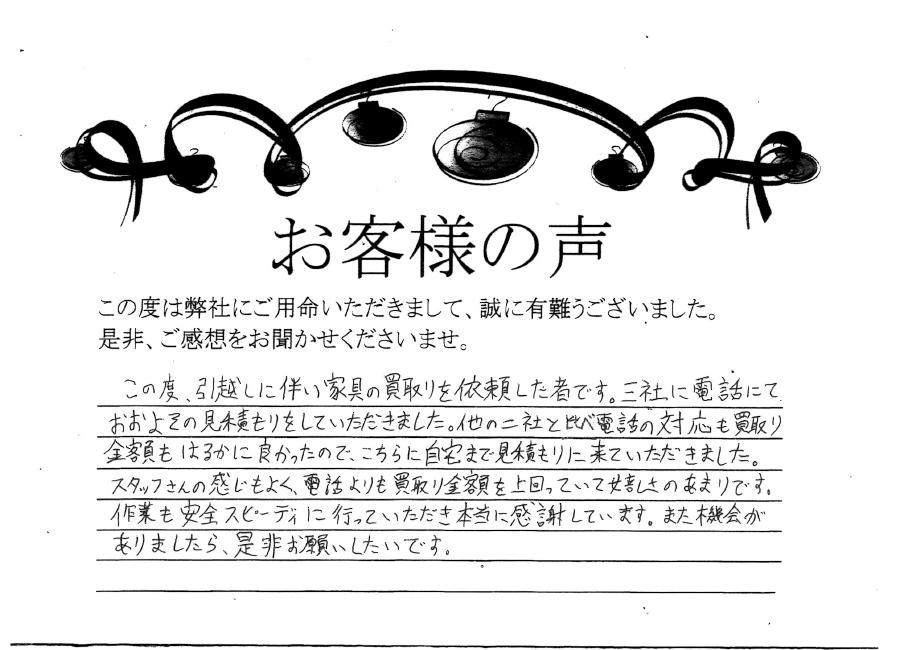 お客様の声
この度は弊社にご用命いただきまして、誠に有難うございました。
是非、ご感想をお聞かせくださいませ。
この度、引越しに伴い家具の買取りを依頼した者です。三社に電話にて
おおよその見積もりをしていただきました。他の二社と比べ電話の対応も買取り
金額もはるかに良かったので、こちらに自宅まで見積もりに来ていただきました。
スタッフさんの感じもよく、電話よりも買取り金額を上回っていて嬉しさのあまりです。
作業も安全スピーディに行っていただき本当に感謝しています。また機会が
ありましたら、是非お願いしたいです。